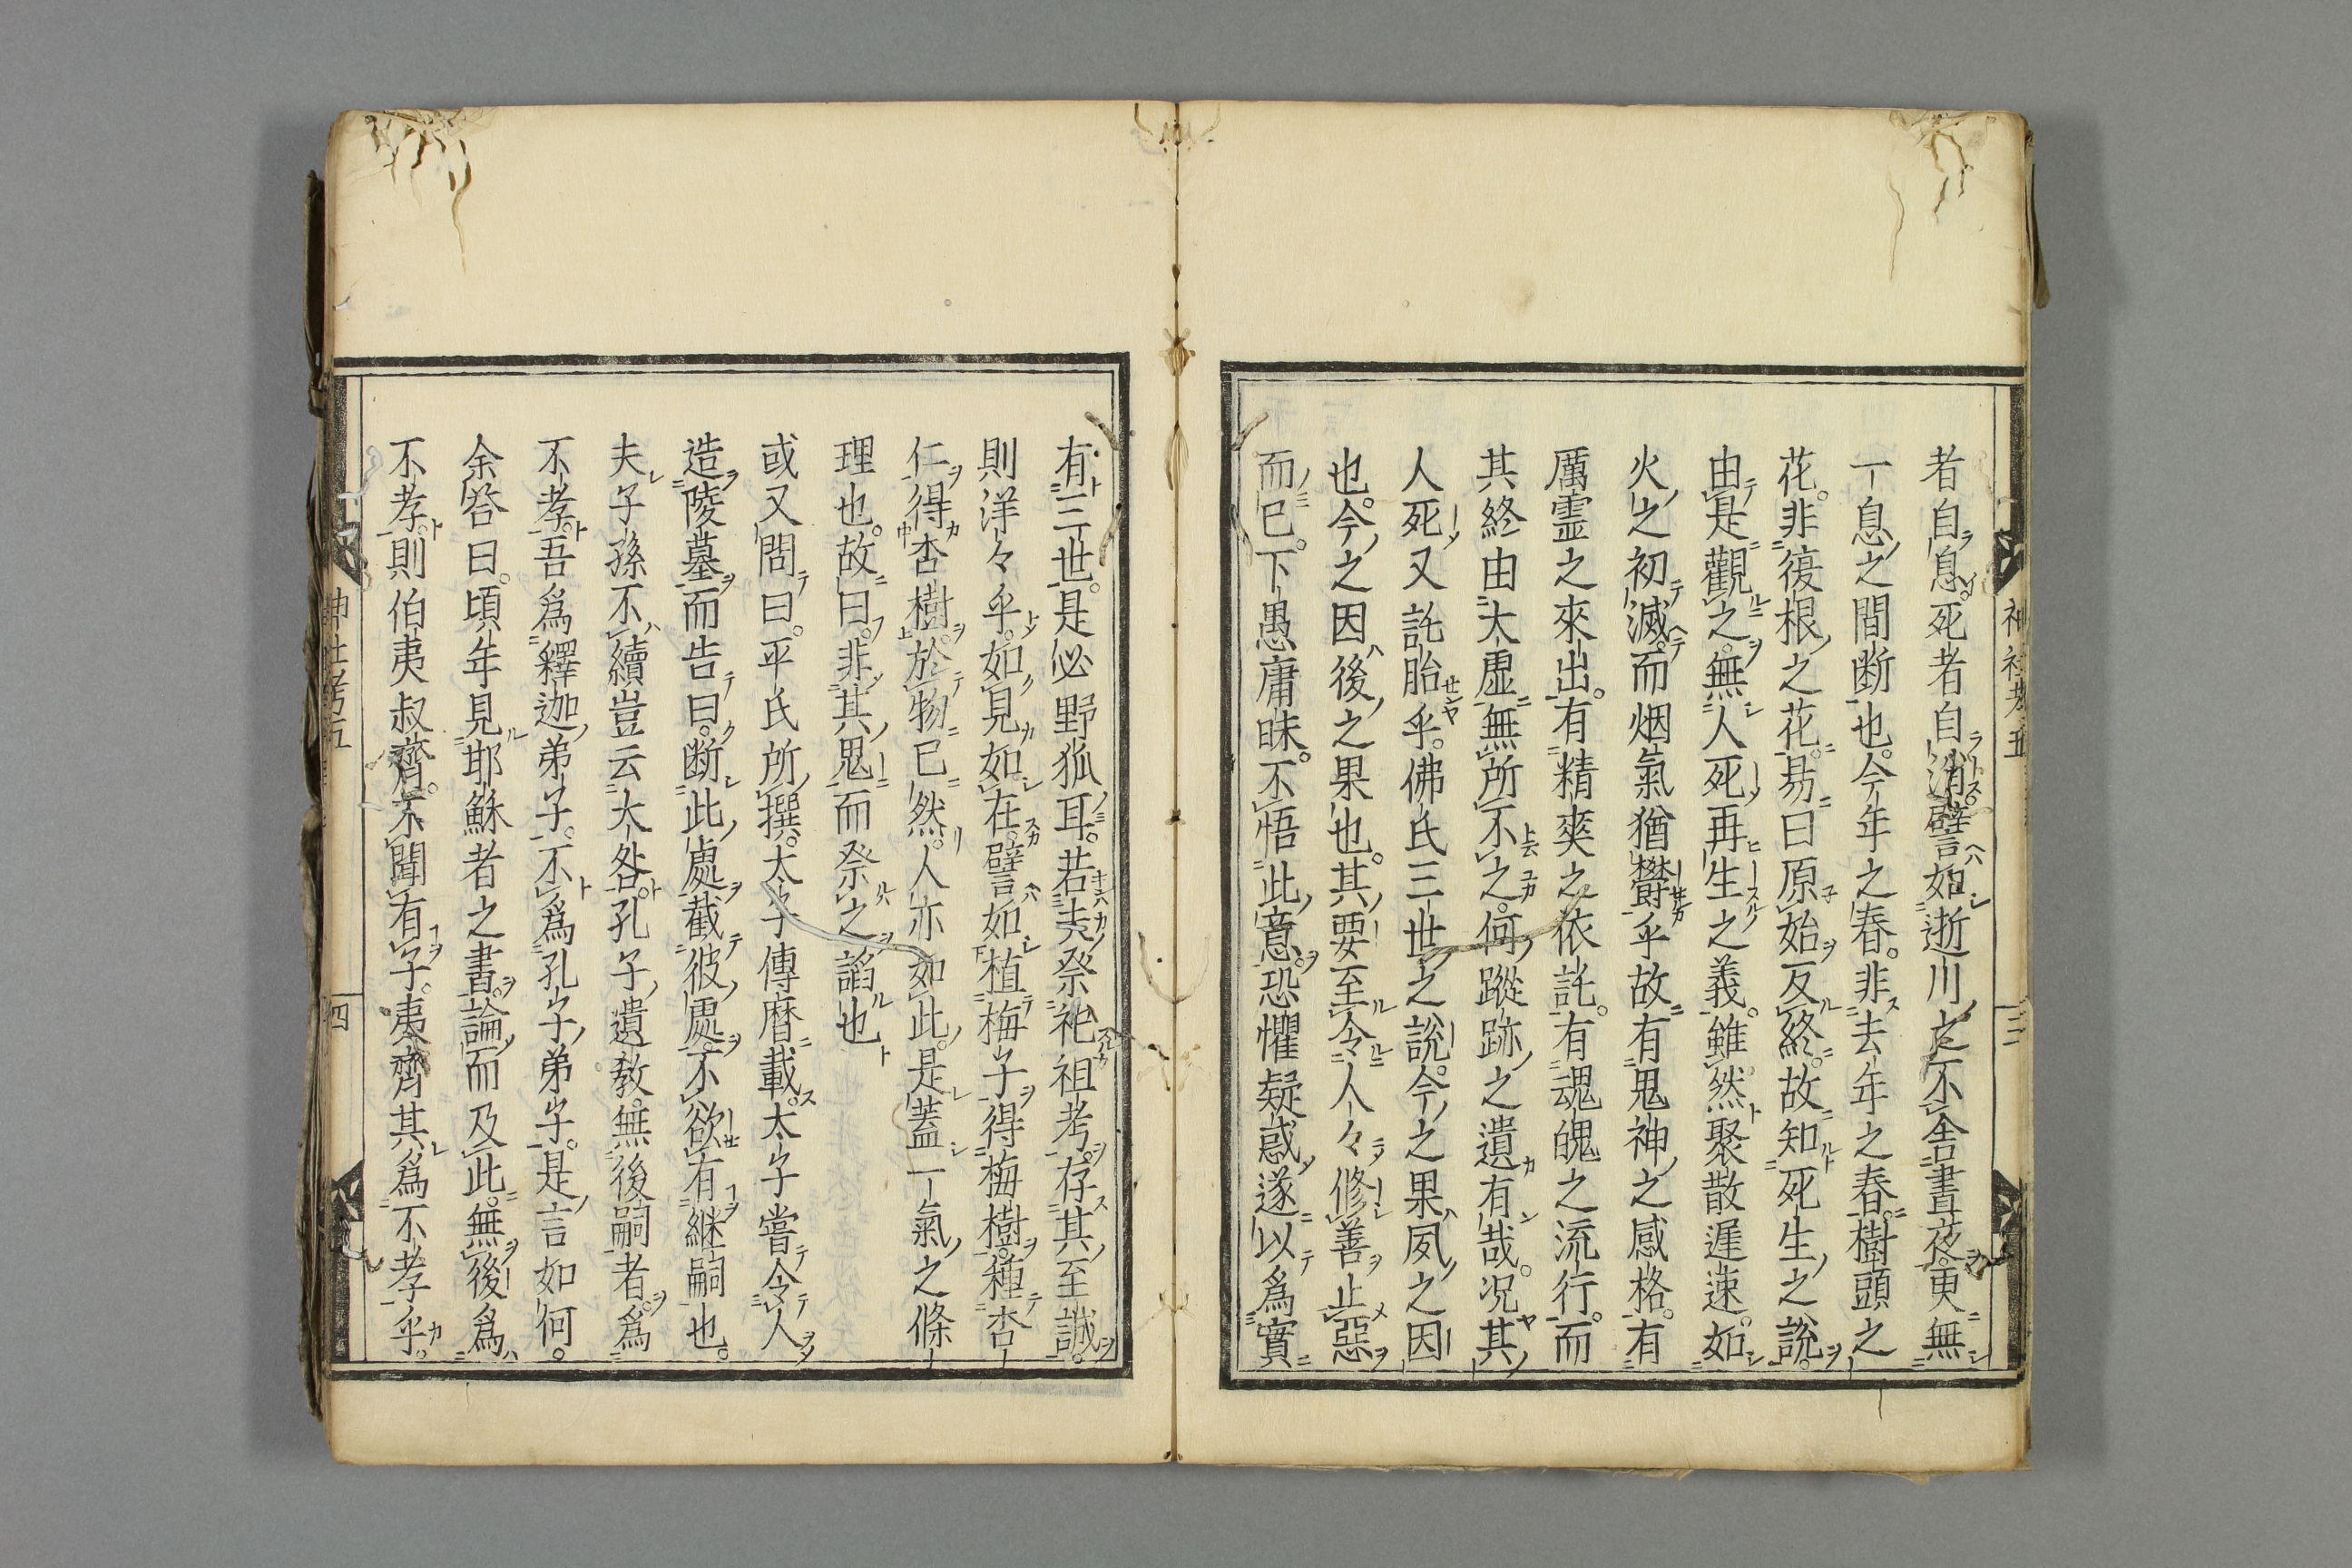 者自息。死者自消。譬如逝川之不舍晝夜。更無
一息之間断也。今年之春。非去年之春。樹頭之
花。非復根之花。易曰原始反終。故知死生之説。
由是觀之。無人死再生之義。雖然聚散遲速。如
火之初滅。而烟氣猶欝乎故有鬼神之感格。有
厲霊之來出。有精爽之依託。有魂魄之流行。而
其終由太虚無所不之。何蹤跡之遺有哉。况其
人死又託胎乎。佛氏三世之説。今之果夙之因
也。今之因後之果也。其要至令人々修善止惡
而已。下愚庸昧。不悟此意。恐懼疑惑遂以爲實
有三世。是必野狐耳。若夫祭祀祖考。存其至誠。
則洋々乎。如見如在。譬如植梅子得梅樹。種杏
仁得杏樹。於物已然。人亦如此。是蓋一氣之條
理也。故曰。非其鬼而祭之諂也
或又問曰。平氏所撰。太子傳暦載。太子嘗令人
造陵墓而告曰。断此處截彼處。不欲有継嗣也。
夫子孫不續豈云大咎。孔子遺敎。無後嗣者爲
不孝。吾爲釋迦弟子。不爲孔子弟子。是言如何。
余答曰。頃年見耶穌者之書。論而及此。無後爲
不孝。則伯夷叔齊。不聞有子。夷齊其爲不孝乎。
神社考五
三
神社考五
四